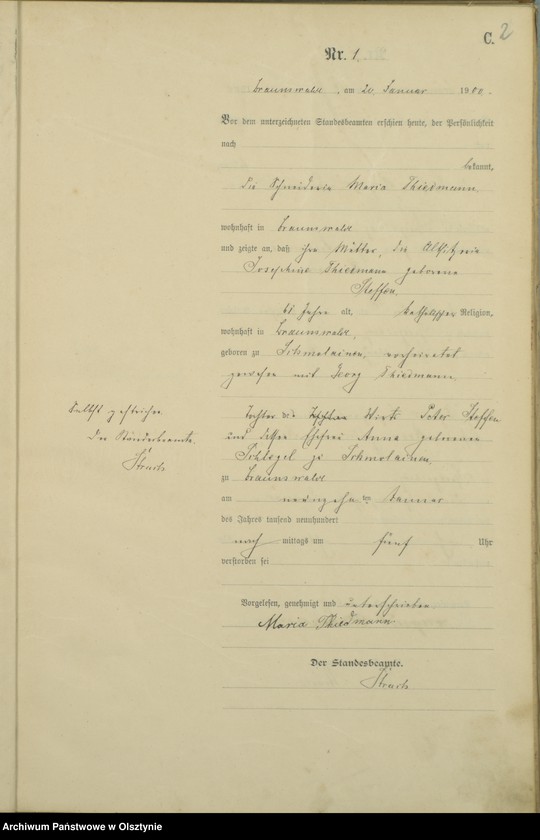 C. 2
Nr. 1.
Braunswalde, am 20. Januar 1900.
Vor dem unterzeichneten Standesbeamten erschien heute, der Persönlichkeit
nach
bekannt,
die Schneiderin Maria Thiedmann
wohnhaft in Braunswalde
und zeigte an, daß ihre Mutter, die Altsitzerin
Josephine Thiedmann geborene
Steffen,
Jahre alt, katholischer Religion,
wohnhaft in Braunswalde,
geboren zu Schmolainen, verheiratet
gewesen mit Georg Thiedmann
Tochter des Wirts Peter Steffen
und dessen Ehefrau Anna geborenen
zu Schmolainen
zu Braunswalde
am neunzehnten Januar
des Jahres tausend neunhundert
nach mittags um fünf Uhr
verstorben sei
Vorgelesen, genehmigt und unterschrieben
Maria Thiedmann
Der Standesbeamte.
gestrichen
Der Standesbeamte.
Archiwum Państwowe w Olsztynie